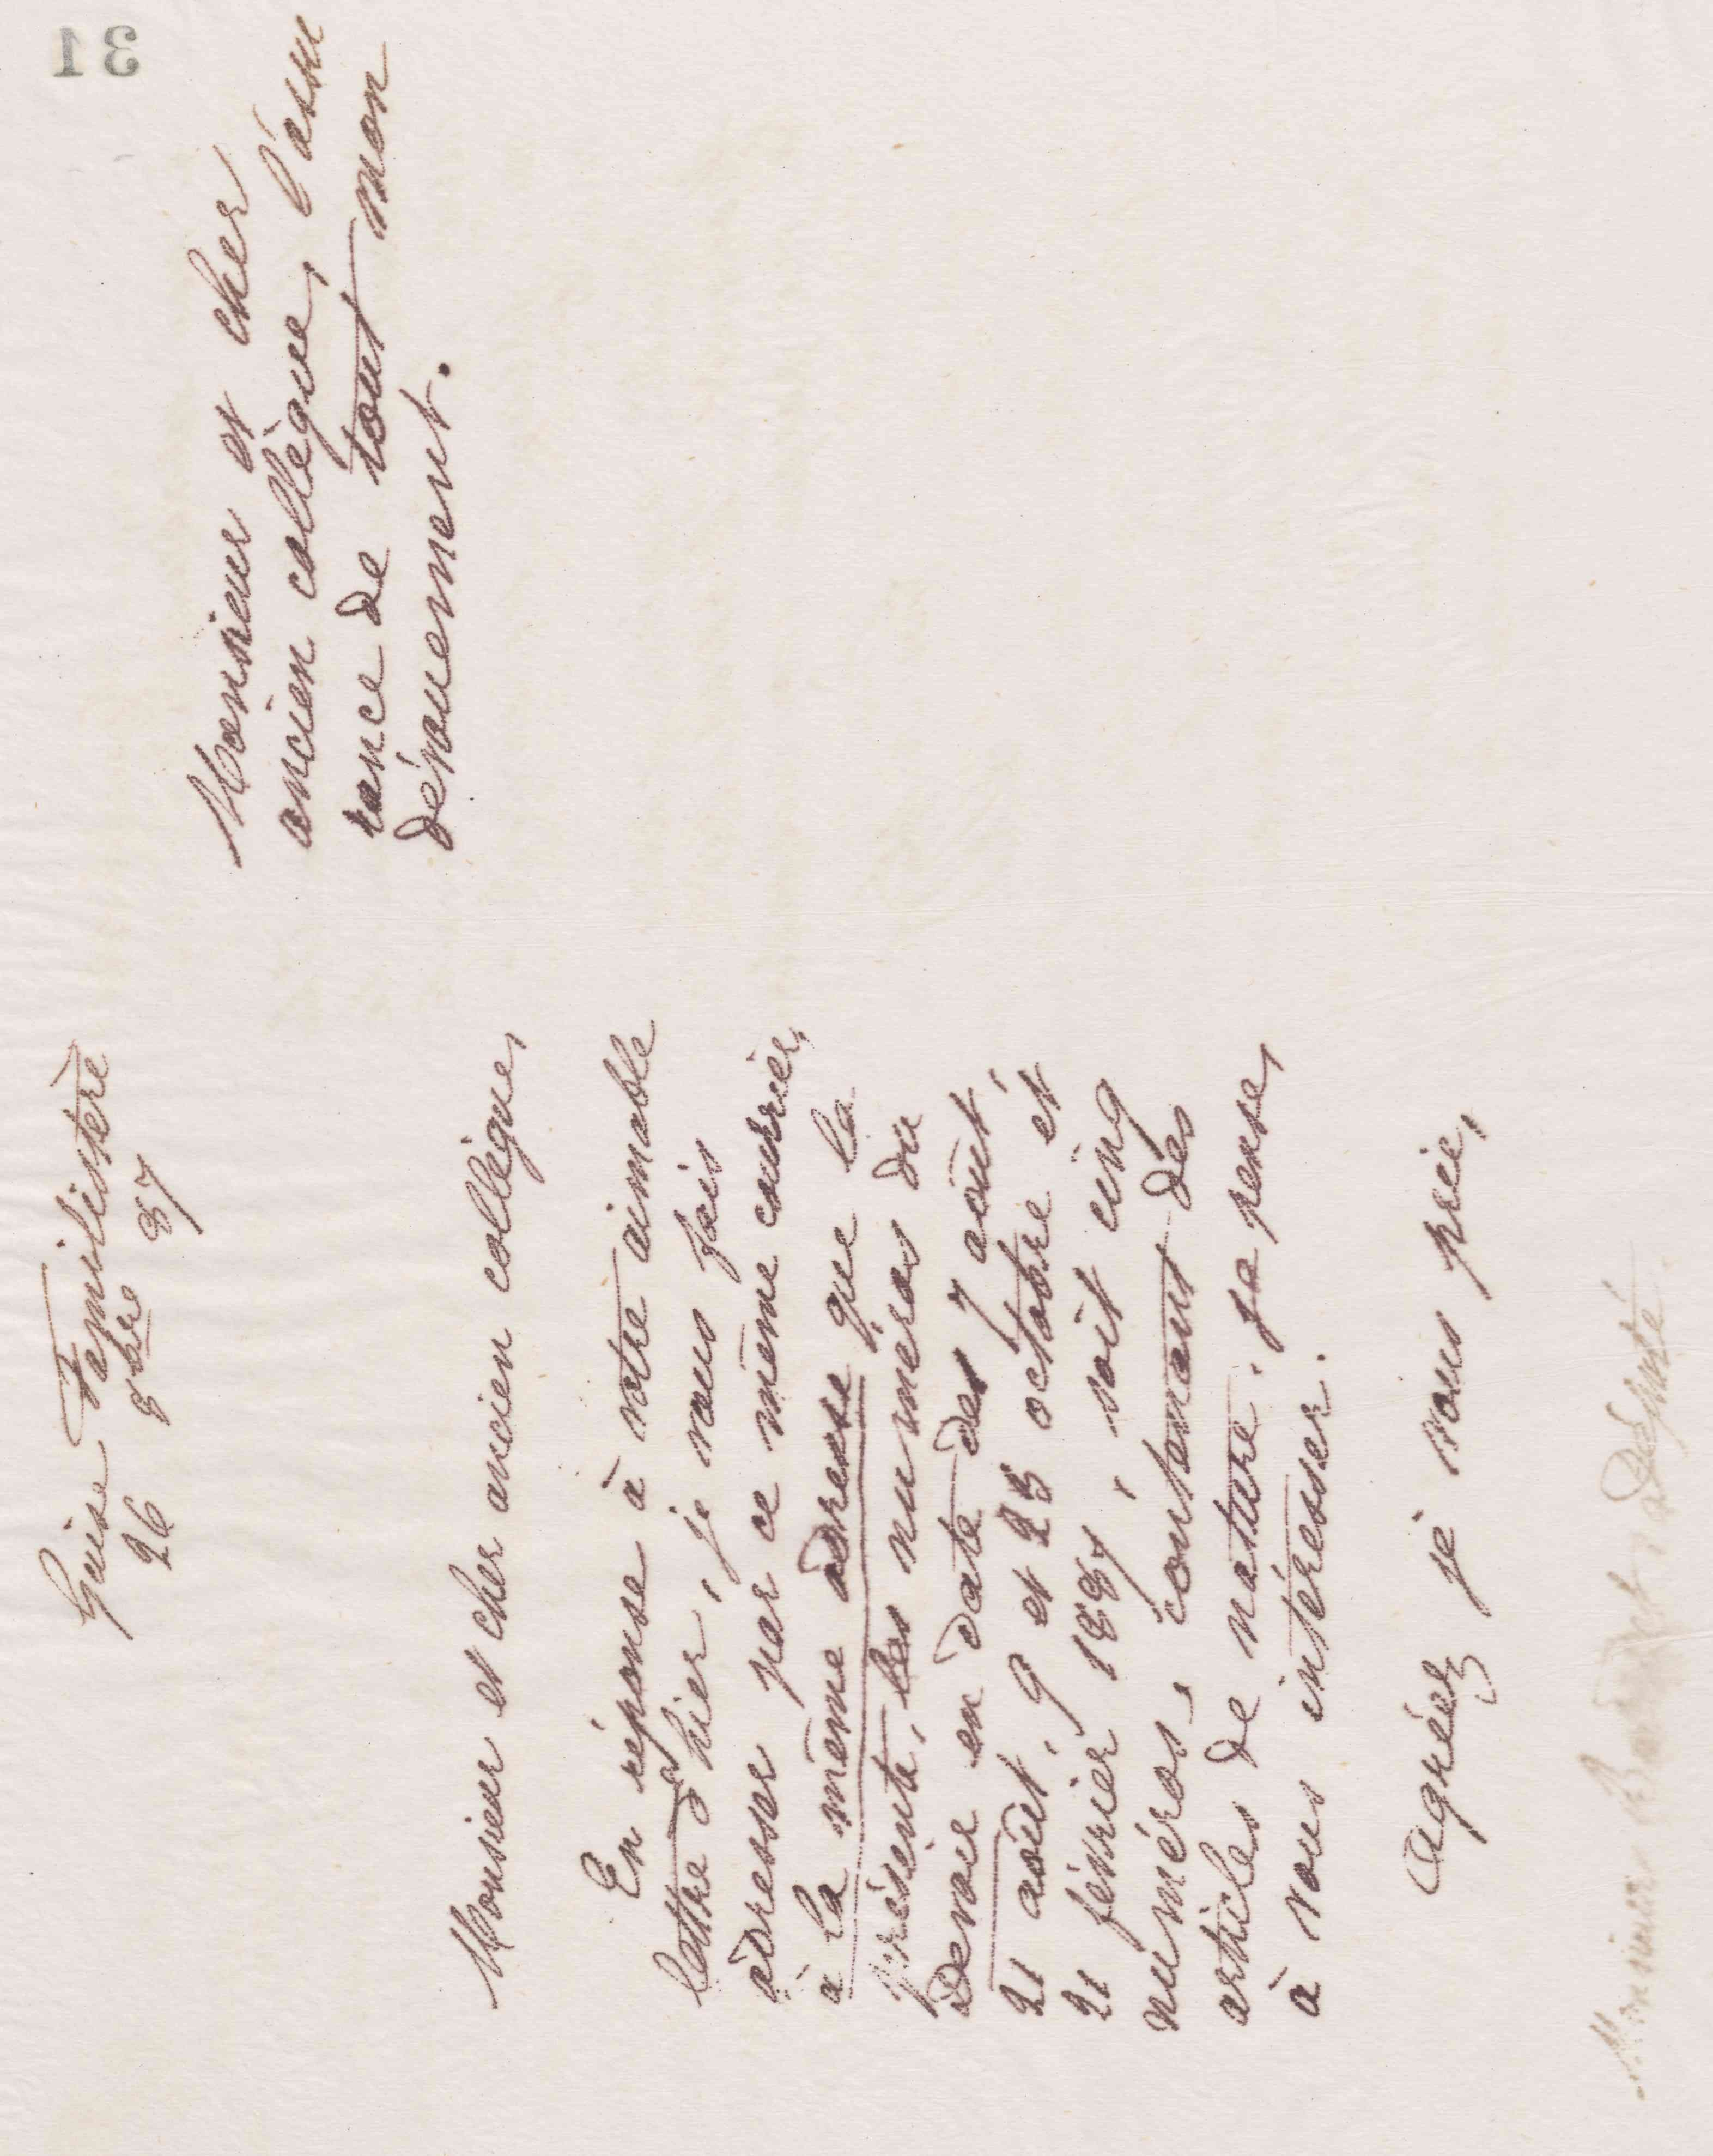 Guise Familistère
26 8bre 87
Monsieur et cher ancien collègue,
En réponse à votre aimable
lettre d'hier, je vous fais
adresser par ce même courrier,
à la même adresse que la
présente, les numéros du
Devoir en date des 7 août,
21 août, 9 et 23 octobre et
21 février 1887, soit cinq
numéros, contenant des
articles de nature, je pense,
à vous intéresser.
Agréez je vous prie,
Monsieur
député.
Monsieur et cher
ancien collègue, l'assu
rance de tout mon
dévouement.
31